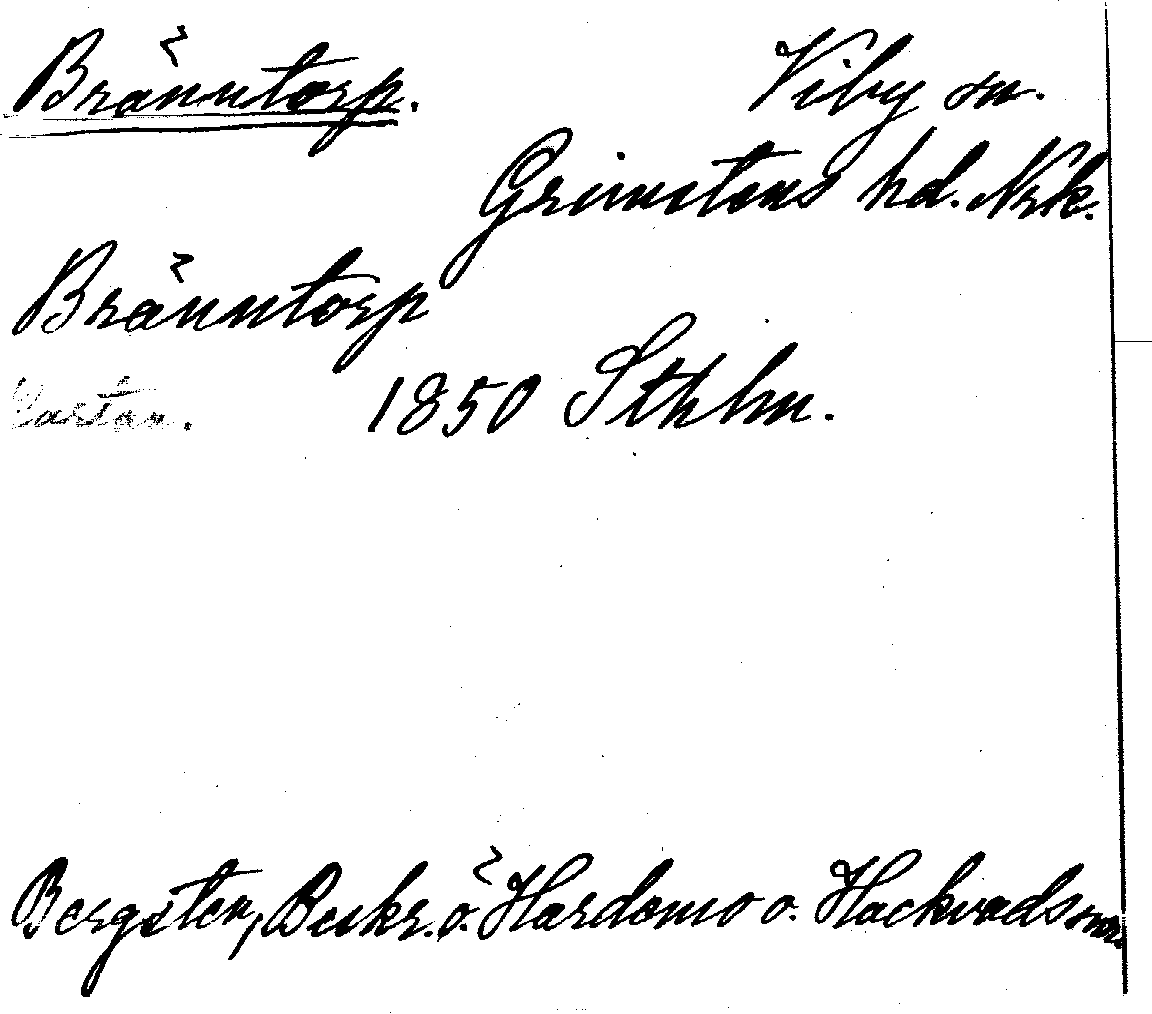 Bränntorp. Viby sn.
Grimstens hd. Nrk.
Bränntorp
Kartan. 1850 Sthlm.
Bergsten, Beskr. ö. Hardemo o. Hackvads snr.